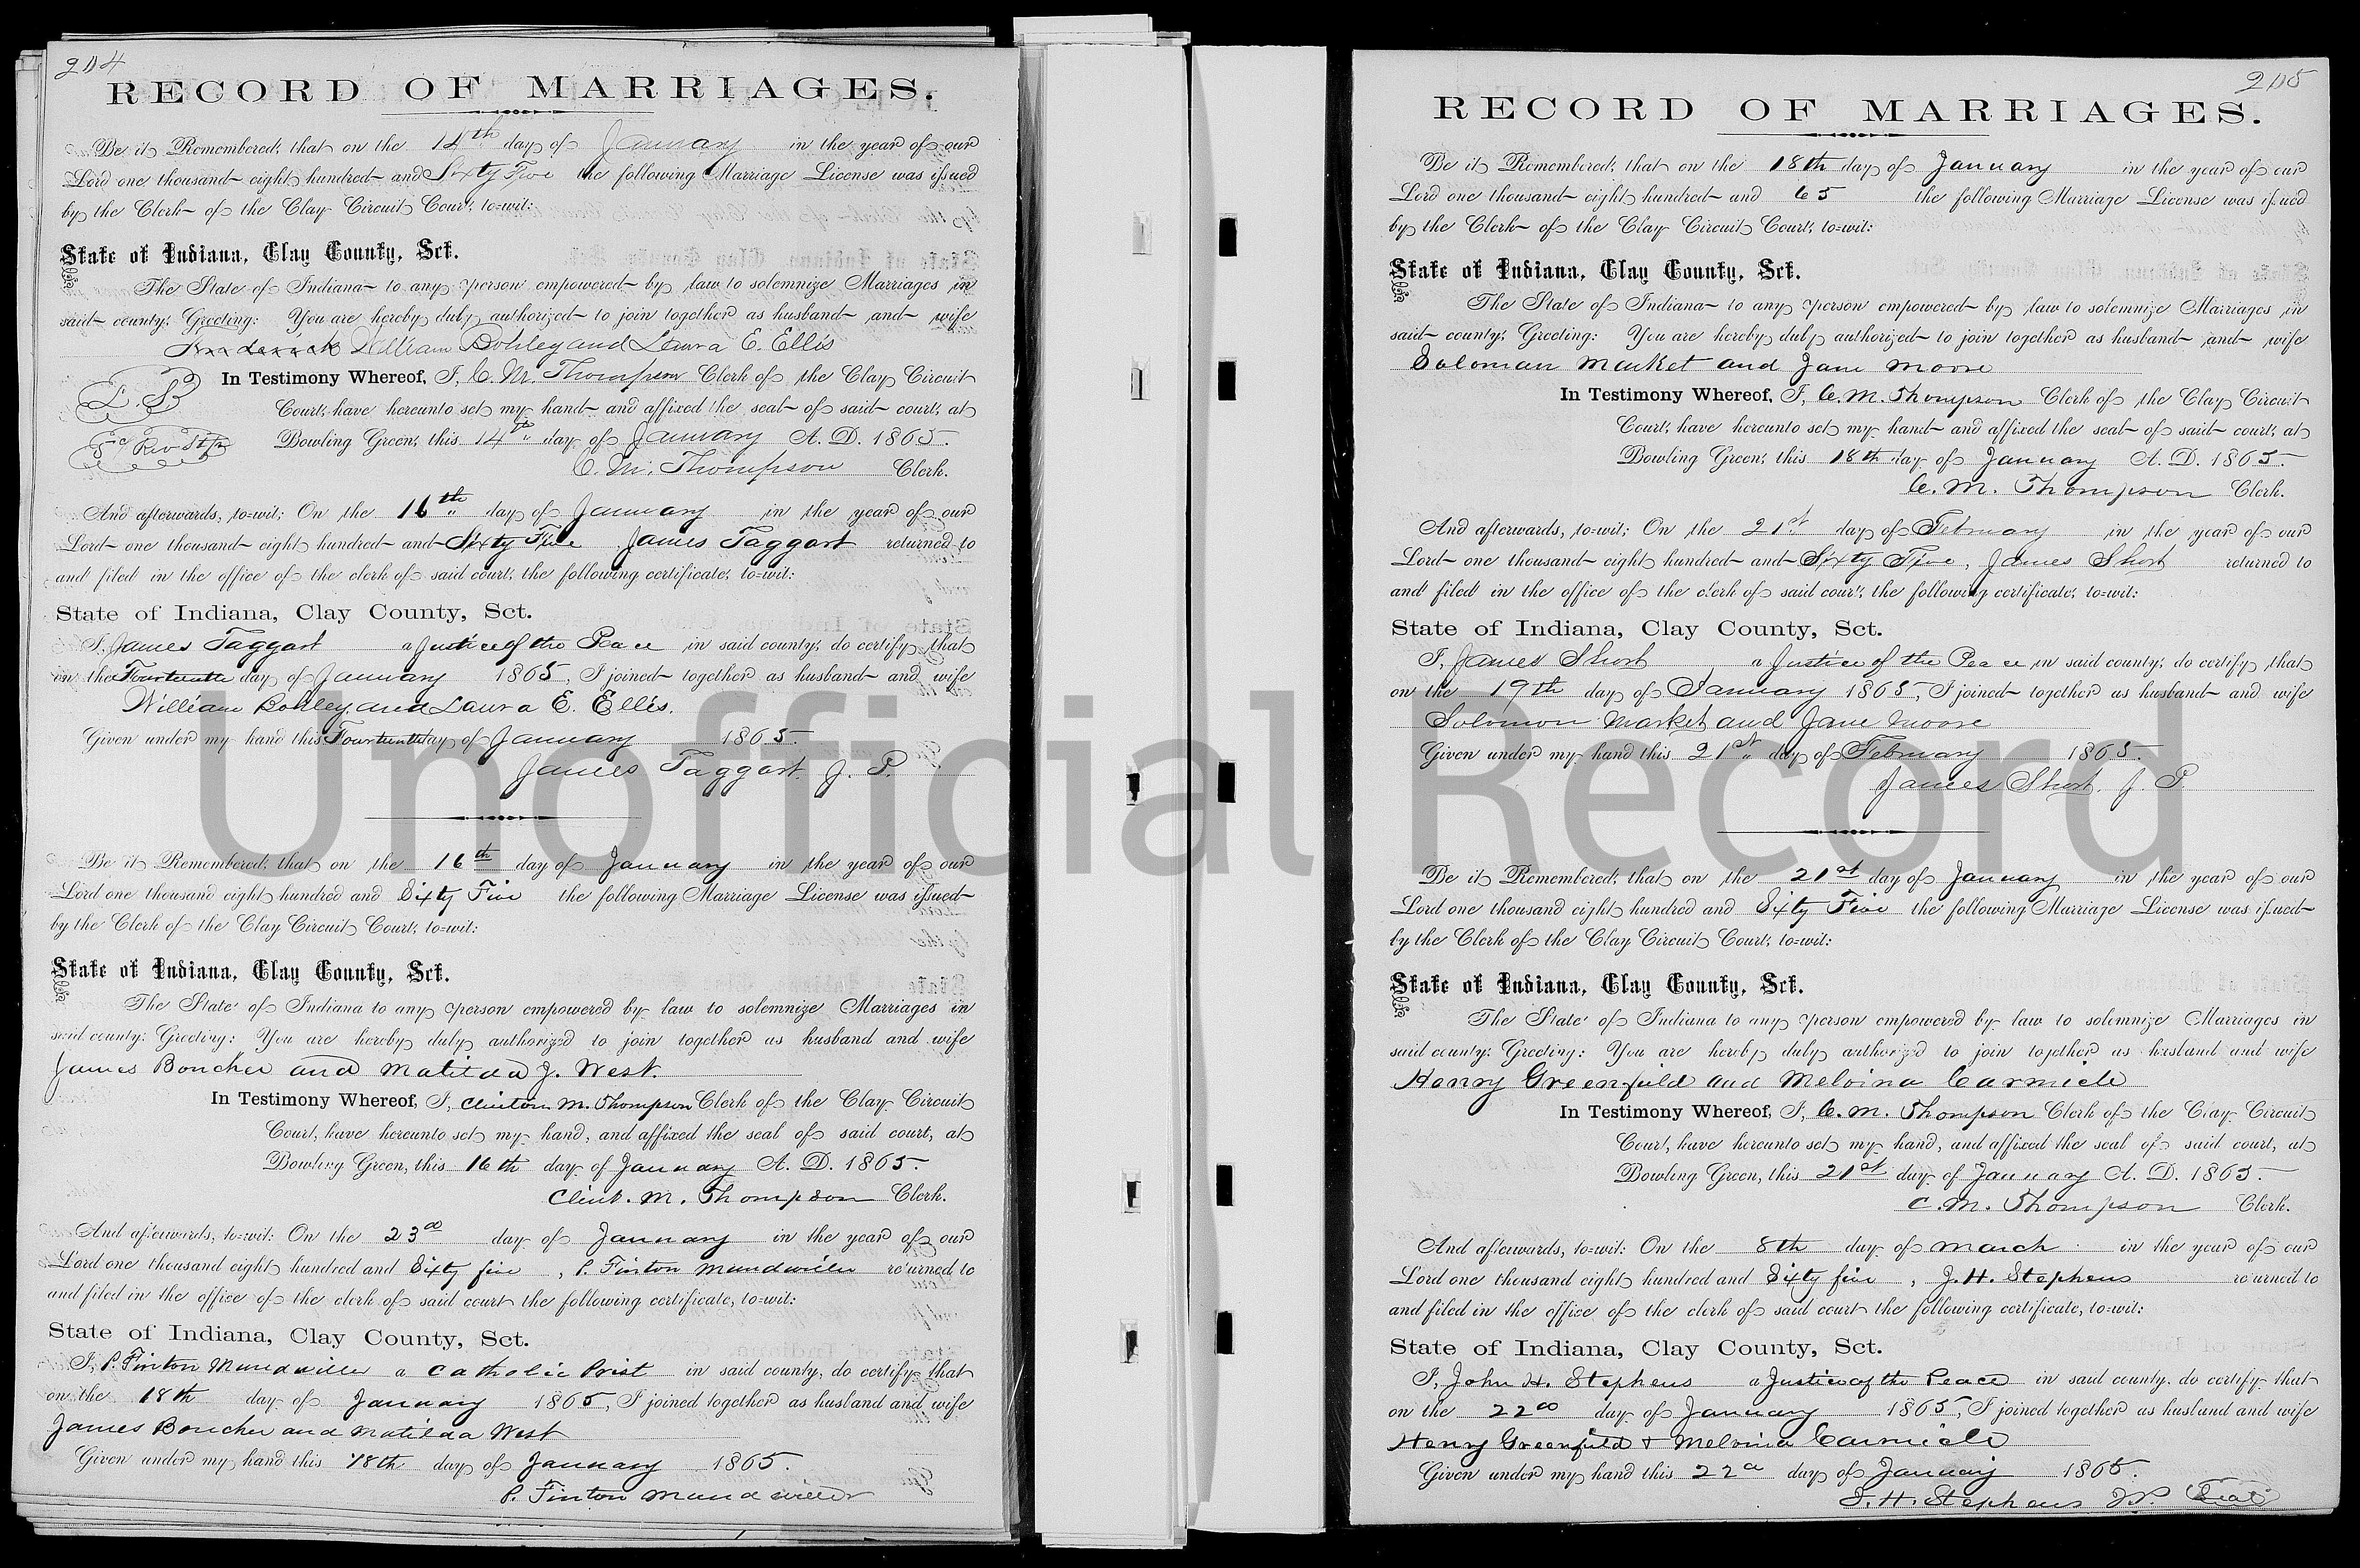 204
RECORD OF MARRIAGES.
Be it Remembered, that on the 14th day of January in the year of our
Lord one thousand eight hundred and Sixty Five the following Marriage License was issued
by the Clerk of the Clay Circuit Court, to=wit:
State of Indiana, Clay County, Sct.
The State of Indiana to any person empowered by law to solemnize Marriages in
said county, Greeting: You are hereby duly authorized to join together as husband and wife
Frederick William Bohley and Laura E. Ellis
In Testimony Whereof, I, C. M. Thompson Clerk of the Clay Circuit
L. S.
Court, have hereunto set my hand and affixed the seal of said court, at
5c Rev Stp
Bowling Green, this 14th day of January A. D. 1865.
C. M. Thompson Clerk.
And afterwards, to=wit; On the 16th day of January in the year of our
Lord one thousand eight hundred and Sixty Five James Taggart returned to
and filed in the office of the clerk of said court, the following certificate, to=wit:
State of Indiana, Clay County, Sct.
I, James Taggart a Justice of the Peace in said county, do certify that
on the Fourteenth day of January 1865, I joined together as husband and wife
William Bohley and Laura E. Ellis.
Given under my hand this Fourteenth day of January 1865.
James Taggart J. P.
Be it Remembered, that on the 16th day of January in the year of our
Lord one thousand eight hundred and Sixty Five the following Marriage License was issued
by the Clerk of the Clay Circuit Court, to=wit:
State of Indiana, Clay County, Sct.
The State of Indiana to any person empowered by law to solemnize Marriages in
said county, Greeting: You are hereby duly authorized to join together as husband and wife
James Boucher and Matilda J. West.
In Testimony Whereof, I, Clinton M. Thompson Clerk of the Clay Circuit
Court, have hereunto set my hand, and affixed the seal of said court, at
Bowling Green, this 16th day of January A. D. 1865.
Clint. M. Thompson Clerk.
And afterwards, to=wit: On the 23d day of January in the year of our
Lord one thousand eight hundred and Sixty five, P. Finton Mundwiler returned to
and filed in the office of the clerk of said court the following certificate, to=wit:
State of Indiana, Clay County, Sct.
I, P. Finton Mundwiller a Catholic Prist in said county, do certify that
on the 18th day of January 1865, I joined together as husband and wife
James Boucher and Matilda West
Given under my hand this 18th day of January 1865.
P. Finton Mundwiler
205
RECORD OF MARRIAGES.
Be it Remembered, that on the 18th day of January in the year of our
Lord one thousand eight hundred and 65 the following Marriage License was issued
by the Clerk of the Clay Circuit Court, to=wit:
State of Indiana, Clay County, Sct.
The State of Indiana to any person empowered by law to solemnize Marriages in
said county, Greeting: You are hereby duly authorized to join together as husband and wife
Soloman Market and Jane Moore
In Testimony Whereof, I, C. M. Thompson Clerk of the Clay Circuit
Court, have hereunto set my hand and affixed the seal of said court, at
Bowling Green, this 18th day of January A. D. 1865.
C. M. Thompson Clerk.
And afterwards, to=wit; On the 21st day of February in the year of our
Lord one thousand eight hundred and Sixty Five, James Short returned to
and filed in the office of the clerk of said court, the following certificate, to=wit:
State of Indiana, Clay County, Sct.
I, James Short, a Justice of the Peace in said county, do certify that
on the 19th day of January 1865, I joined together as husband and wife
Solomon Market and Jane Moore
Given under my hand this 21st day of February 1865.
James Short. J. P.
Be it Remembered, that on the 21st day of January in the year of our
Lord one thousand eight hundred and Sixty Five the following Marriage License was issued
by the Clerk of the Clay Circuit Court, to=wit:
State of Indiana, Clay County, Sct.
The State of Indiana to any person empowered by law to solemnize Marriages in
said county, Greeting: You are hereby duly authorized to join together as husband and wife
Henry Greenfield and Melvina Carmicle
In Testimony Whereof, I, C. M. Thompson Clerk of the Clay Circuit
Court, have hereunto set my hand, and affixed the seal of said court, at
Bowling Green, this 21st day of January A. D. 1865.
C. M. Thompson Clerk.
And afterwards, to=wit: On the 8th day of March in the year of our
Lord one thousand eight hundred and Sixty five, J. H. Stephens returned to
and filed in the office of the clerk of said court the following certificate, to=wit:
State of Indiana, Clay County, Sct.
I, John H. Stephens a Justice of the Peace in said county, do certify that
on the 22d day of January 1865, I joined together as husband and wife
Henry Greenfield & Melvina Carmicle
Given under my hand this 22d day of January 1865.
J. H. Stephens JP. Seal
Unofficial Record